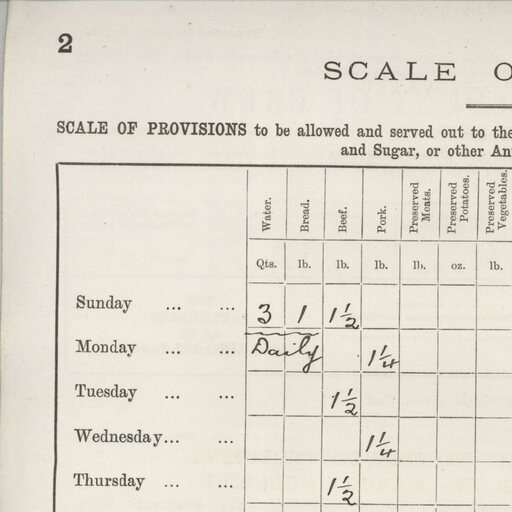 2
SCALE O
SCALE OF PROVISIONS to be allowed and served out to the
and Sugar, or other An
Water. Bread. Beef. Pork. Preserved Meats. Preserved Potatoes. Preserved Vegetables.
Qts. lb. lb. lb. lb. oz. lb.
Sunday ... ... 3 1 1 1/2
Monday ... ... Daily 1 1/4
Tuesday ... ... 1 1/2
Wednesday... ... 1 1/4
Thursday ... ... 1 1/2